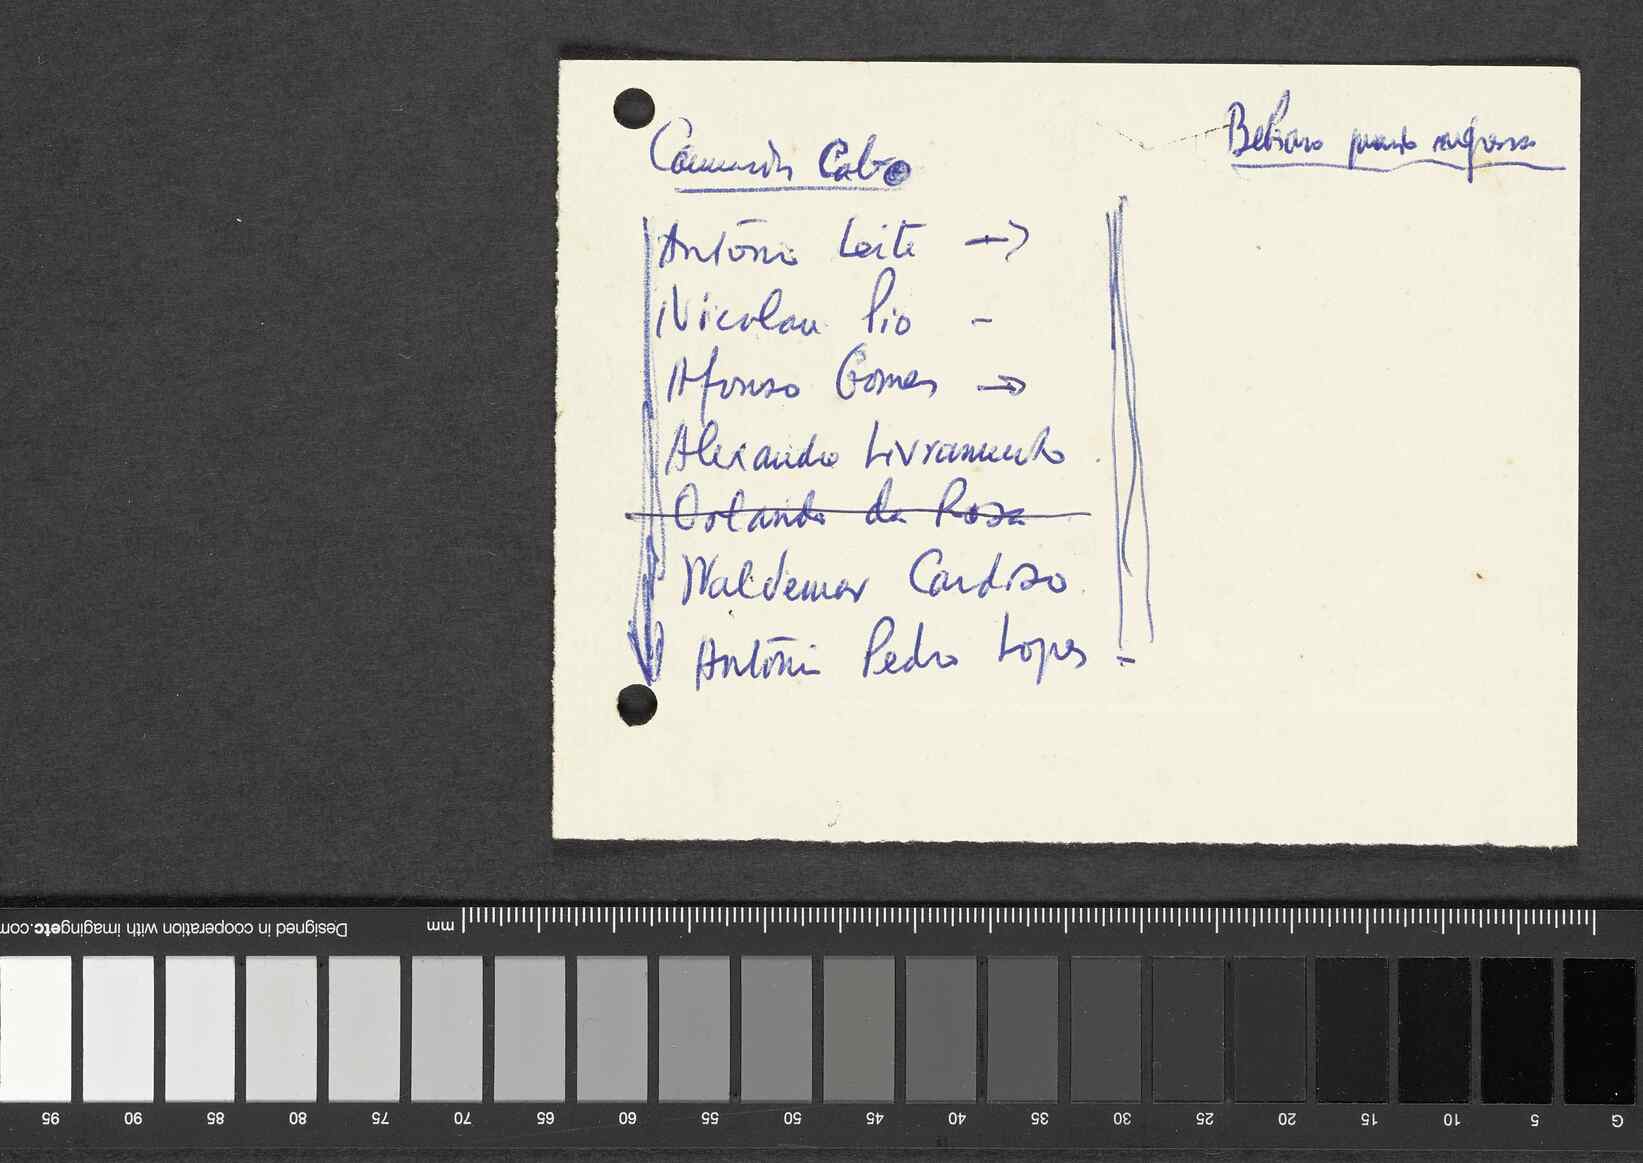 Comissão Cabo
Betinho quando regressa
António Leite →
Nicolau Pio -
Afonso Gomes →
Alexandre Livramento
Orlando da Rosa
Waldemar Cardoso
António Pedro Lopes -
Designed in cooperation with imagingetc.com
mm
95 90 85 80 75 70 65 60 55 50 45 40 35 30 25 20 15 10 5 G